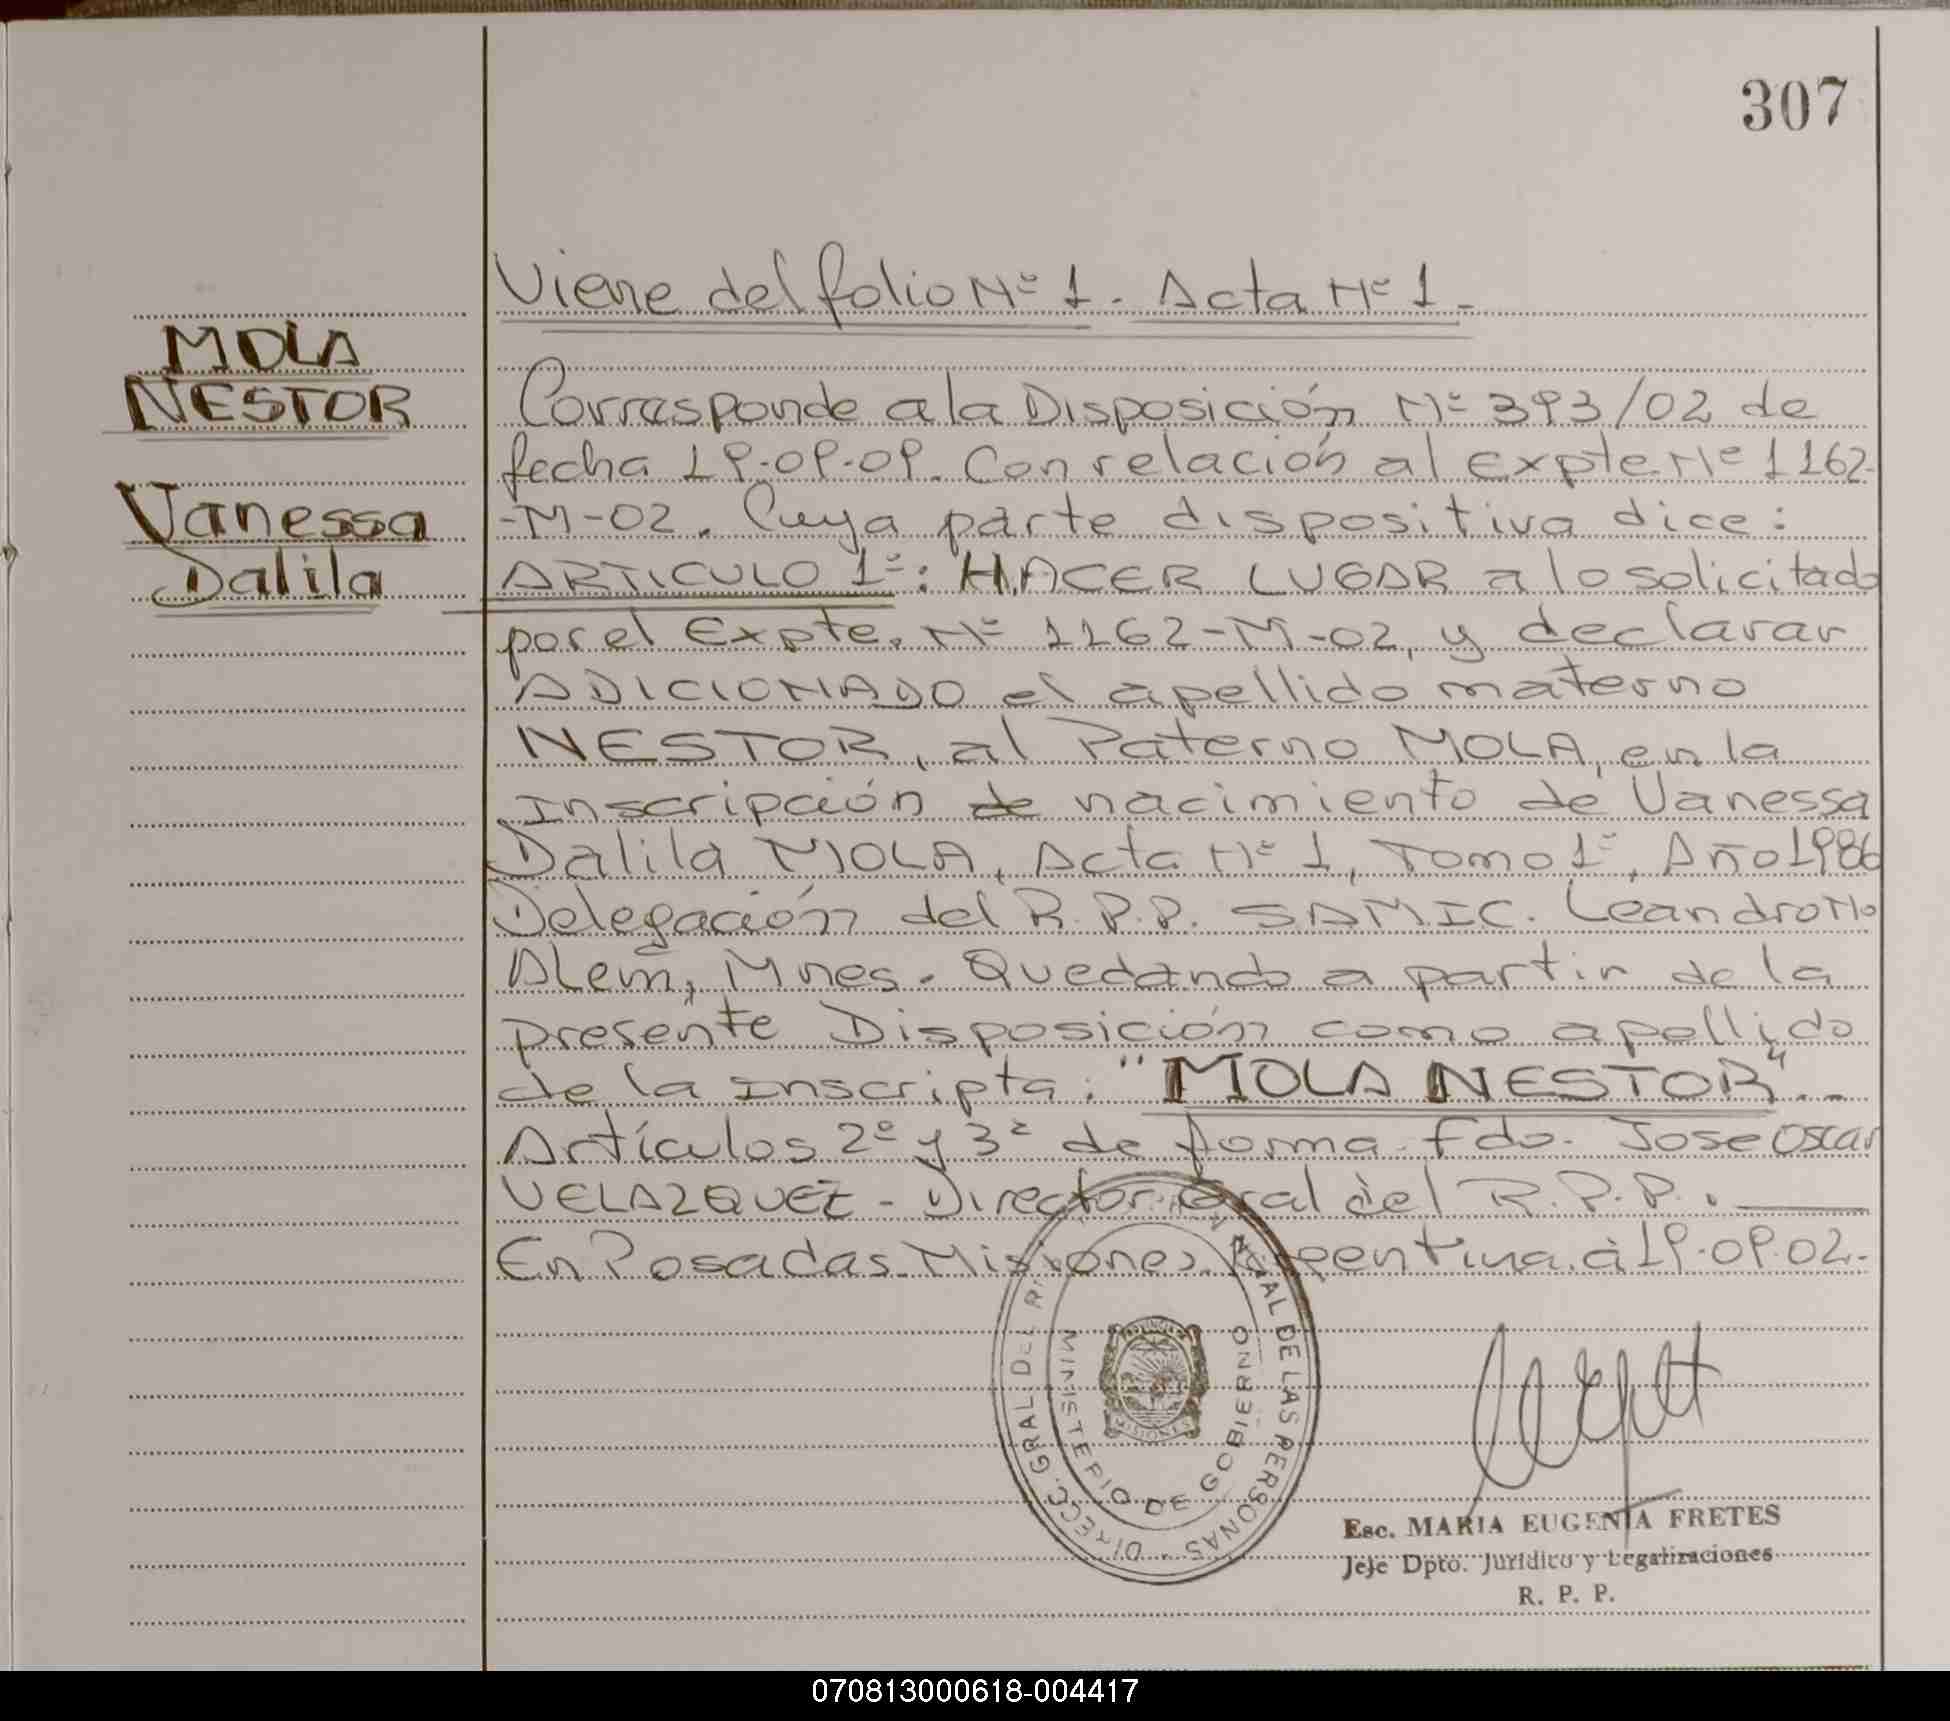 307
Viene del folio Nº 1. Acta Nº 1.
MOLA
NESTOR
Vanessa
Dalila
Corresponde a la Disposición Nº 393/02 de
fecha 19.09.09. Con relación al Expte. Nº 1162-
-M-02. Cuya parte dispositiva dice:
ARTICULO 1º: HACER LUGAR a lo solicitado
por el Expte. Nº 1162-M-02, y declarar
ADICIONADO el apellido materno
NESTOR, al Paterno MOLA, en la
Inscripción de nacimiento de Vanessa
Dalila MOLA, Acta Nº 1, Tomo 1º, Año 1986
Delegación del R.P.P. SAMIC. Leandro N.
Alem, Mnes. Quedando a partir de la
presente Disposición como apellido
de la Inscripta: "MOLA NESTOR".-
Artículos 2º y 3º de forma. Fdo. Jose Oscar
VELAZQUEZ - Director Gral del R.P.P.
En Posadas. Misiones. Argentina. a 19.09.02.
DIRECC. GRAL DEL R. PERSONAS
MINISTERIO DE GOBIERNO
PROVINCIA DE
MISIONES
Esc. MARIA EUGENIA FRETES
Jefe Dpto. Jurídico y Legalizaciones
R. P. P.
070813000618-004417